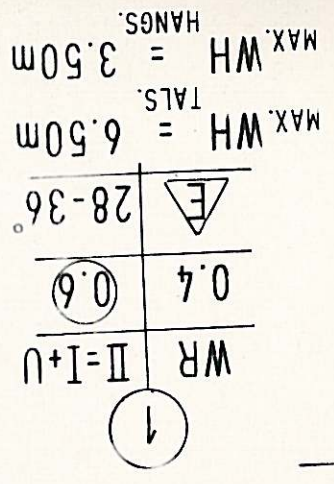 1
WR II=I+U
0.4 0.6
E 28-36°
MAX. WH TALS. = 6.50m
MAX. WH HANGS. = 3.50m